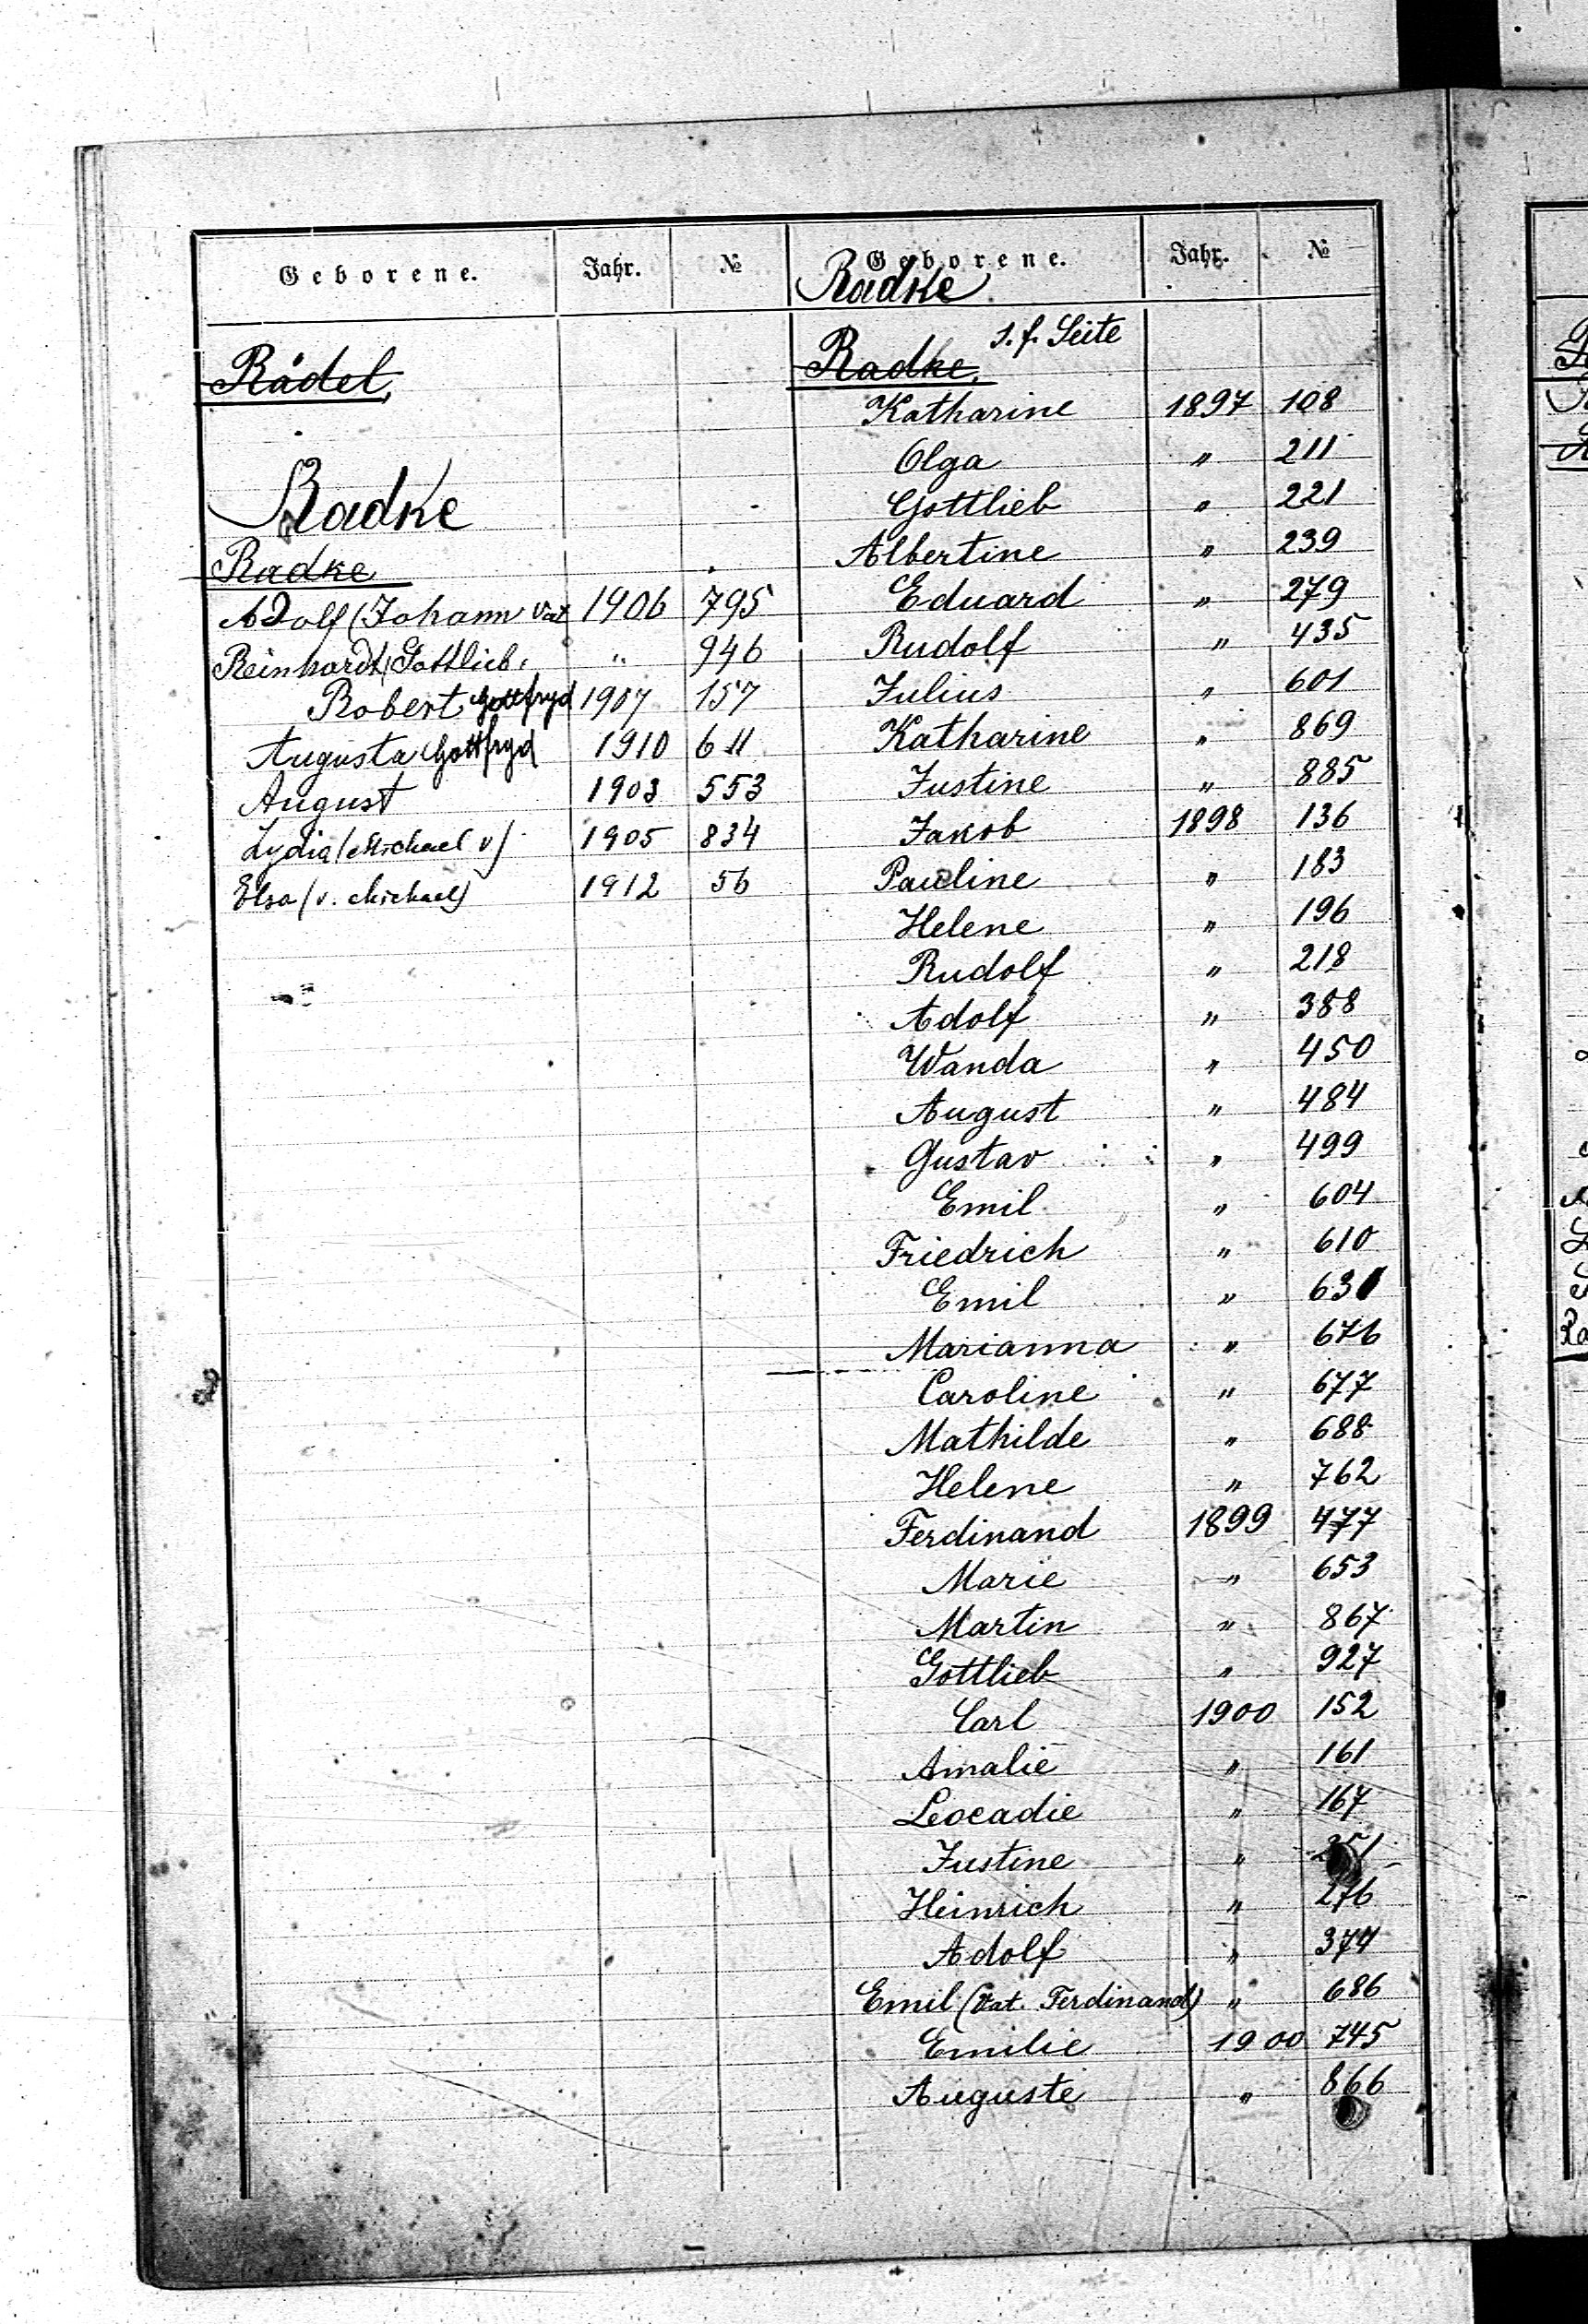 Geborene. Jahr. № Geborene. Jahr. №
Radke
s. f. Seite
Rädel,
Radke
Radke
Adolf (Johann Vat 1906 795
Reinhardt, Gottlieb, " 946
Robert Gottfryd 1907 157
Augusta Gottfryd 1910 611
August 1903 553
Lydia (Michael v) 1905 834
Elsa (v. Michael) 1912 56
Radke.
Katharine 1897 108
Olga " 211
Gottlieb " 221
Albertine " 239
Eduard " 279
Rudolf " 435
Julius " 601
Katharine " 869
Justine " 885
Jakob 1898 136
Pauline " 183
Helene " 196
Rudolf " 218
Adolf " 388
Wanda " 450
August " 484
Gustav " 499
Emil " 604
Friedrich " 610
Emil " 631
Marianna " 676
Caroline " 677
Mathilde " 688
Helene " 762
Ferdinand 1899 477
Marie " 653
Martin " 867
Gottlieb " 927
Carl 1900 152
Amalie " 161
Leocadie " 167
Justine " 251
Heinrich " 276
Adolf " 374
Emil (Vat. Ferdinand) " 686
Emilie 1900 745
Auguste " 866